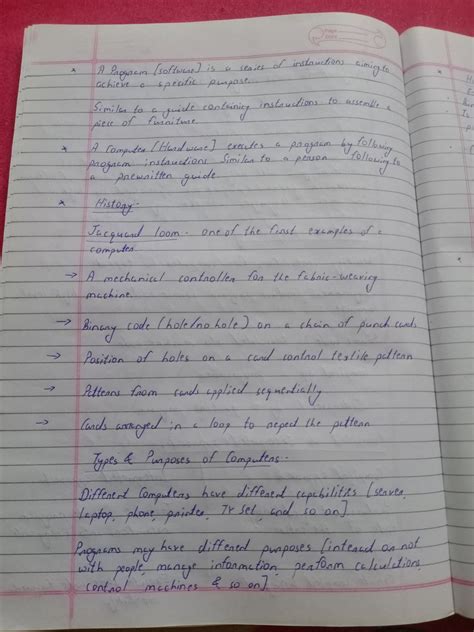 * A Program [software] is a series of instructions aiming to
achieve a specific purpose.
Similar to a guide containing instructions to assemble a
piece of furniture.
* A Computer [Hardware] executes a program by following
program instructions Similar to a person following to
a prewritten guide
* History -
Jacquard loom - one of the first examples of a
computer.
→ A mechanical controller for the fabric-weaving
machine.
→ Binary code (hole/no hole) on a chain of punch cards
→ Position of holes on a card control textile pattern
→ Patterns from cards applied sequentially
→ Cards arranged in a loop to repeat the pattern
Types & Purposes of Computers -
Different Computers have different capabilities [server,
laptop, phone, printer, TV set, and so on]
Programs may have different purposes [interact or not
with people, manage information, perform calculations,
control machines & so on].